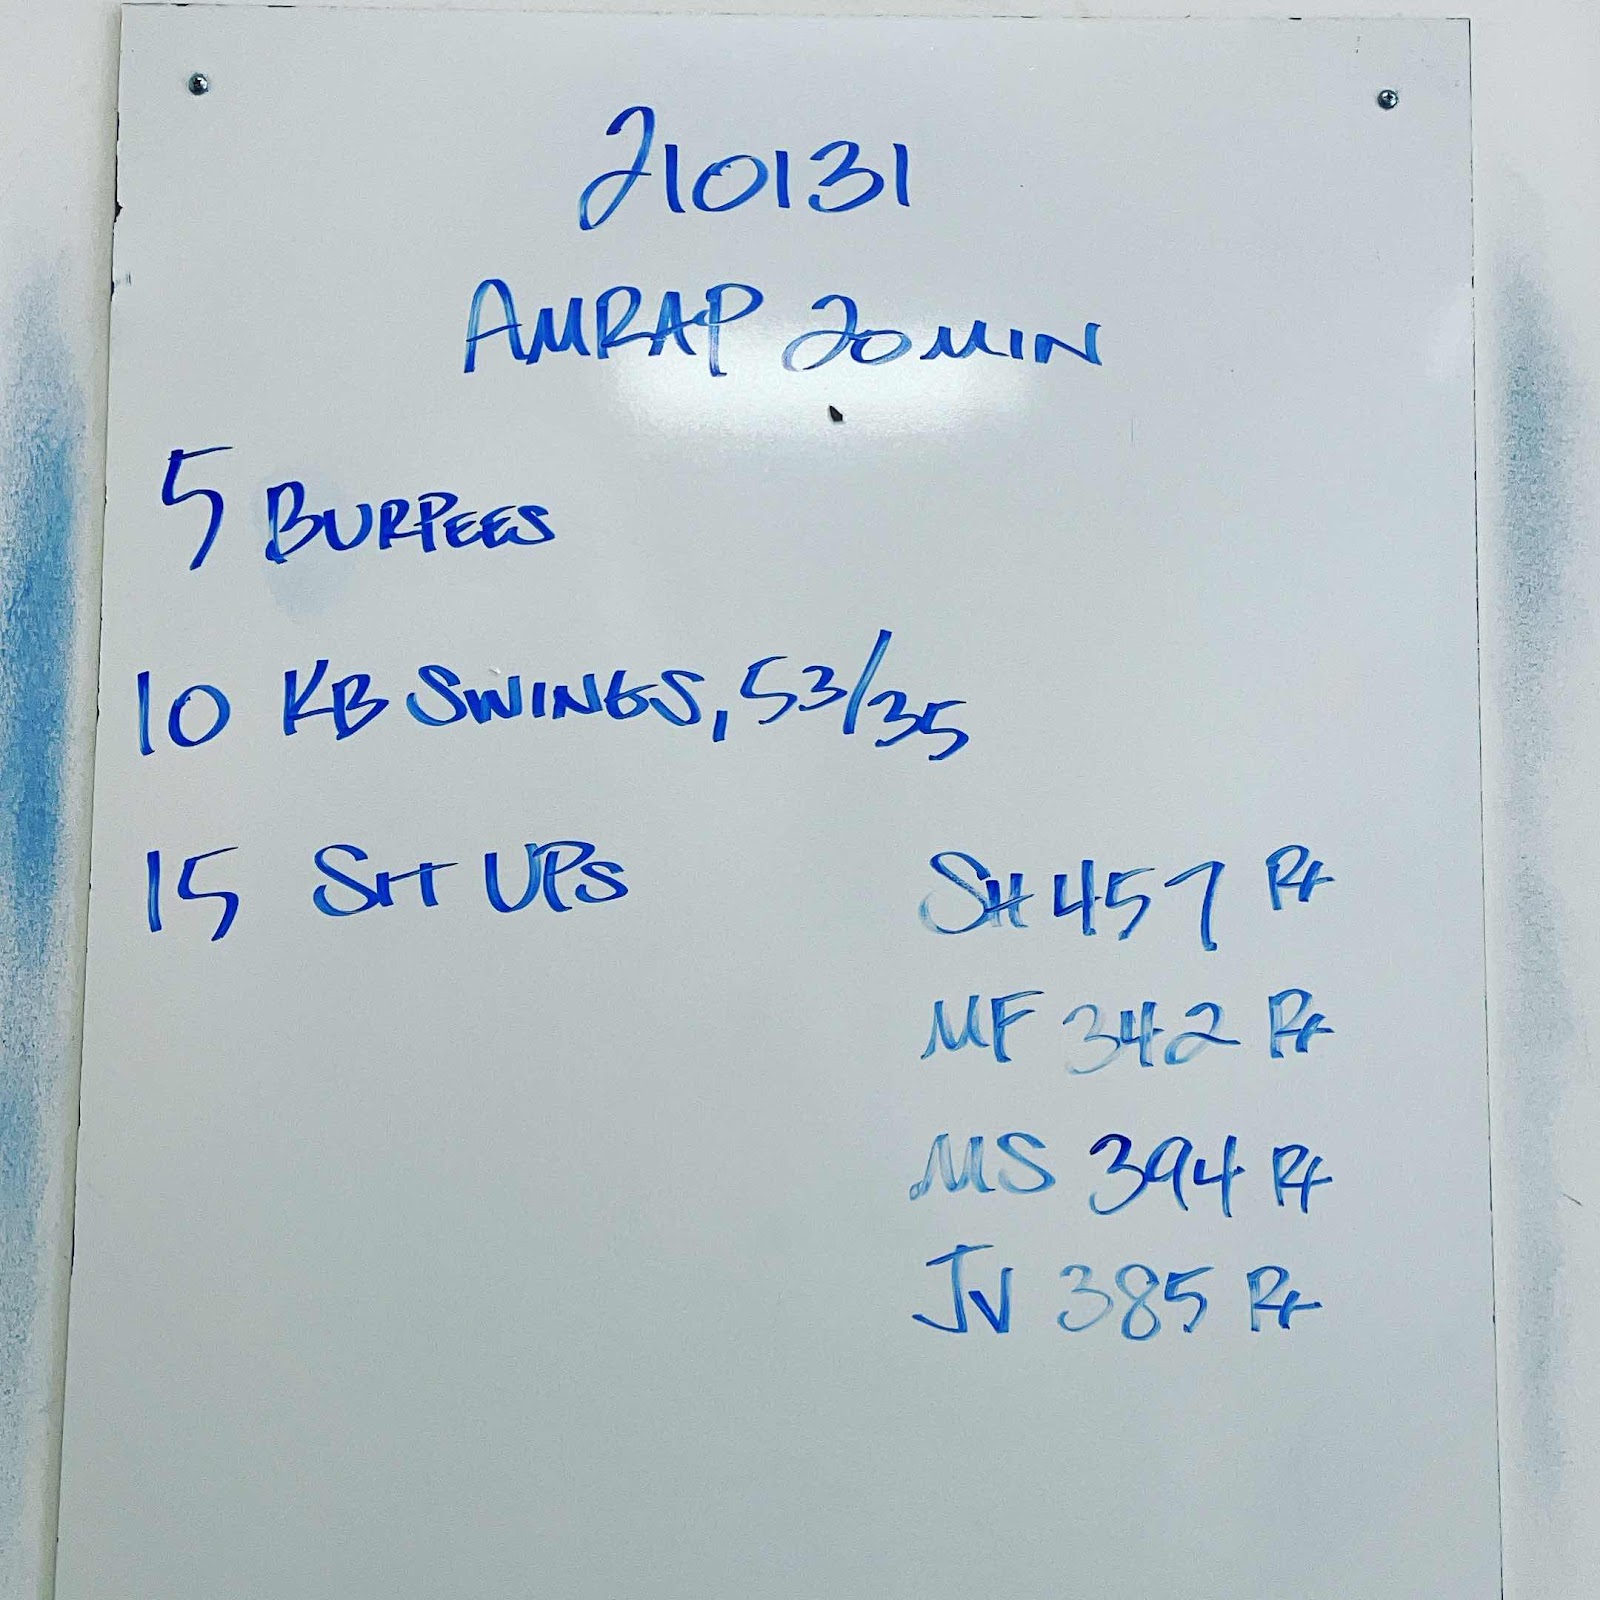 210131
AMRAP 20 MIN
5 BURPEES
10 KB SWINGS, 53/35
15 SIT UPS
SH 457 Rx
MF 342 Rx
MS 394 Rx
JV 385 Rx